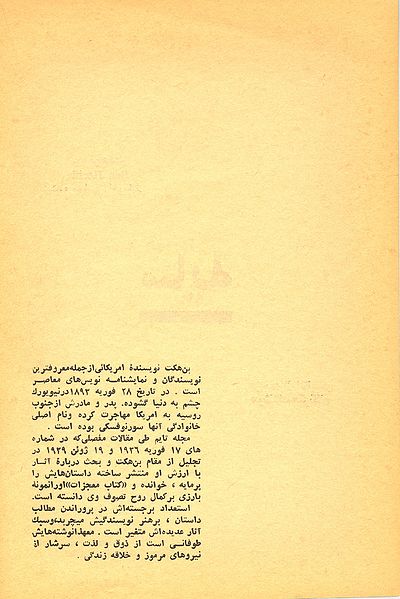 بن‌هکت نویسندهٔ امریکائی‌ازجمله‌معروفترین
نویسندگان و نمایشنامه نویس‌های معاصر
است . در تاریخ ۲۸ فوریه ۱۸۹۲درنیویورك
چشم به دنیا گشوده. پدر و مادرش ازجنوب
روسیه به امریکا مهاجرت کرده ونام اصلی
خانوادگی آنها سورنوفسکی بوده است .
مجله تایم طی مقالات مفصلی‌که در شماره
های ۱۷ فوریه ۱۹۲۶ و ۱۹ ژوئن ۱۹۲۹ در
تجلیل از مقام بن‌هکت و بحث دربارهٔ آثار
با ارزش او منتشر ساخته داستان‌هایش را
پرمایه ، خوانده و «کتاب معجزات»اورانمونه
بارزی برکمال روح تصوف وی دانسته است.
استعداد برجسته‌اش در پروراندن مطالب
داستان ، برهنر نویسندگیش میچربد،وسبك
آثار عدیده‌اش متغیر است . معهذانوشته‌هایش
طوفانی است از ذوق و لذت ، سرشار از
نیروهای مرموز و خلاقه زندگی .